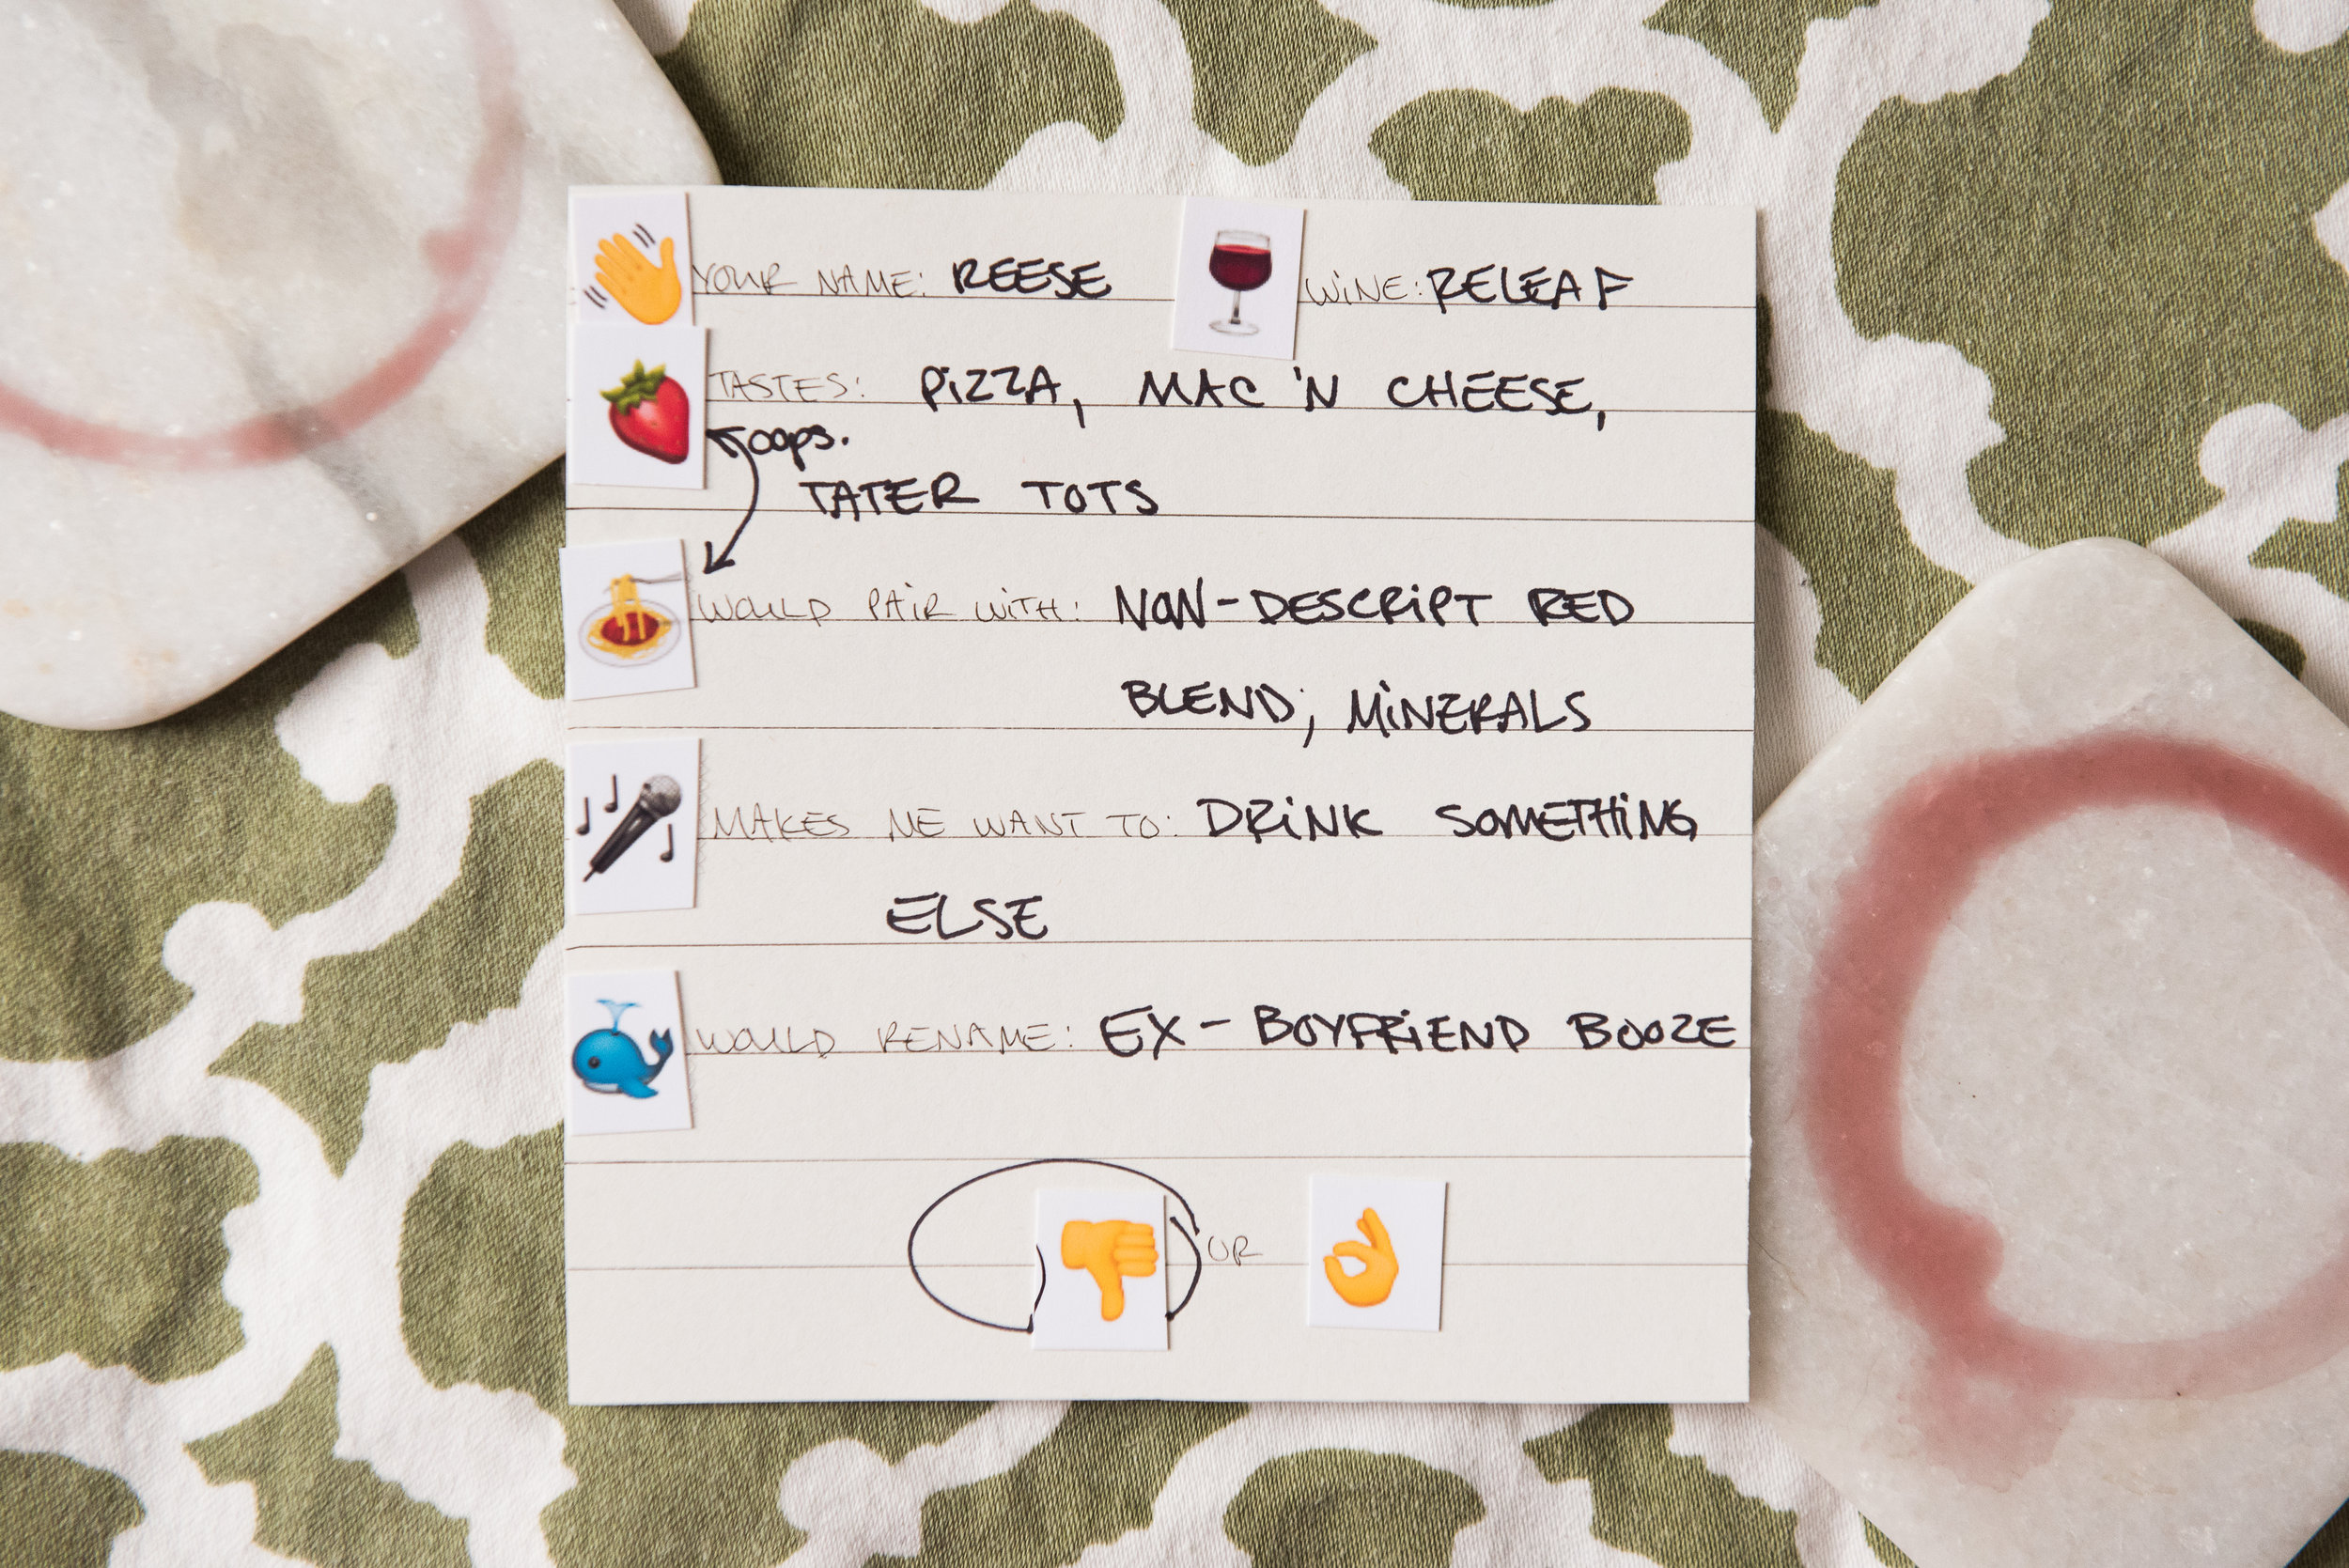 YOUR NAME: REESE WINE: RELEAF
TASTES: PIZZA, MAC 'N CHEESE,
oops.
TATER TOTS
WOULD PAIR WITH: NON-DESCRIPT RED
BLEND, MINERALS
MAKES ME WANT TO: DRINK SOMETHING
ELSE
WOULD RENAME: EX-BOYFRIEND BOOZE
OR